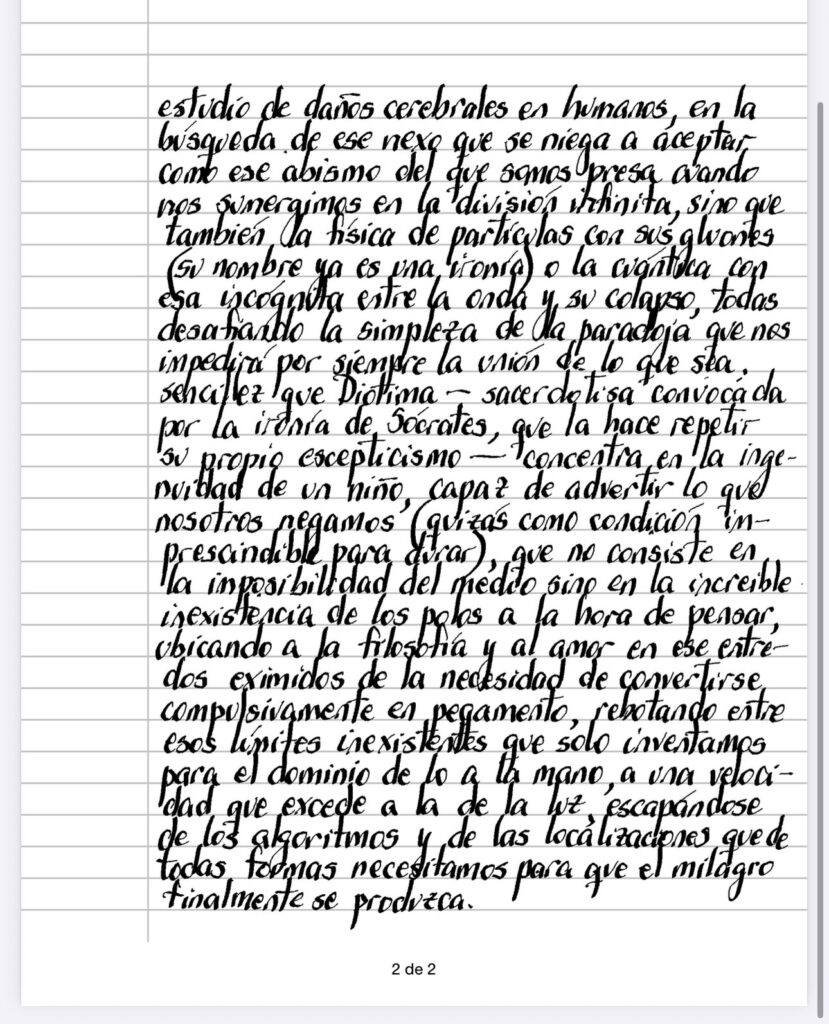 estudio de daños cerebrales en humanos, en la
búsqueda de ese nexo que se niega a aceptar
como ese abismo del que somos presa cuando
nos sumergimos en la división infinita, sino que
también la física de partículas con sus gluones
(su nombre ya es una ironía) o la cuántica con
esa incógnita entre la onda y su colapso, todas
desafiando la simpleza de la paradoja que nos
impedirá por siempre la unión de lo que sea.
sencillez que Diotima — sacerdotisa convocada
por la ironía de Sócrates, que la hace repetir
su propio escepticismo — concentra en la inge-
nuidad de un niño, capaz de advertir lo que
nosotros negamos (quizás como condición im-
prescindible para durar), que no consiste en
la imposibilidad del medio sino en la increíble
inexistencia de los polos a la hora de pensar,
ubicando a la filosofía y al amor en ese entre-
dos eximidos de la necesidad de convertirse
compulsivamente en pegamento, rebotando entre
esos límites inexistentes que solo inventamos
para el dominio de lo a la mano, a una veloci-
dad que excede a la de la luz, escapándose
de los algoritmos y de las localizaciones que de
todas formas necesitamos para que el milagro
finalmente se produzca.
2 de 2